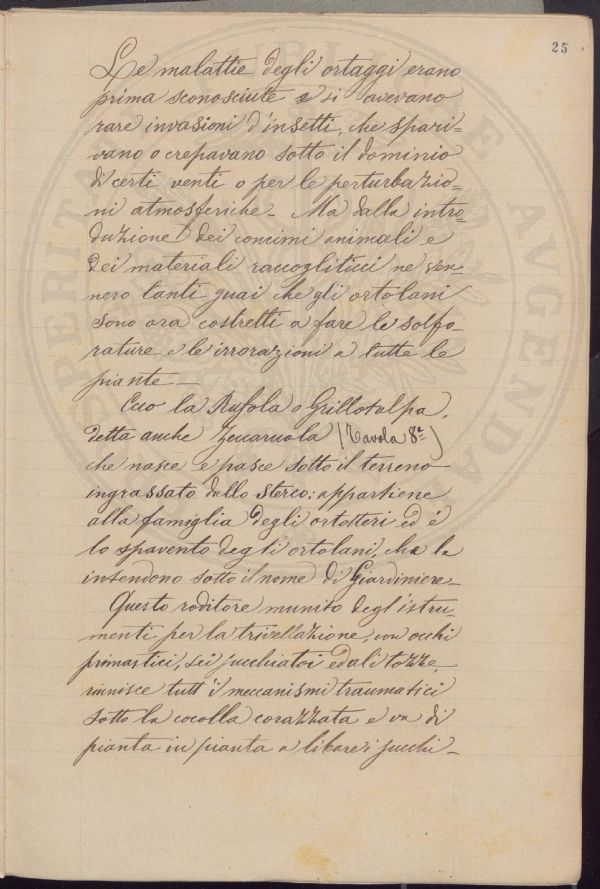 25
Le malattie degli ortaggi erano
prima sconosciute e si avevano
rare invasioni d'insetti, che spari=
vano o crepavano sotto il dominio
di certi venti o per le perturbazio=
ni atmosferiche. Ma dalla intro=
duzione dei concimi animali e
dei materiali raccogliticci ne ven=
nero tanti guai che gli ortolani
sono ora costretti a fare le solfo=
rature e le irrorazioni a tutte le
piante _
Ecco la Rufola o Grillotalpa,
detta anche Zuccaruola (Tavola 8ª)
che nasce e pasce sotto il terreno
ingrassato dallo sterco: appartiene
alla famiglia degli ortotteri ed è
lo spavento degli ortolani, che la
intendono sotto il nome di Giardiniere _
Questo roditore munito degl'istru=
menti per la trivellazione, con occhi
sei succhiatoi ed ali tozze,
riunisce tutt'i meccanismi traumatici
sotto la cocolla corazzata e va di
pianta in pianta a libare i succhi _